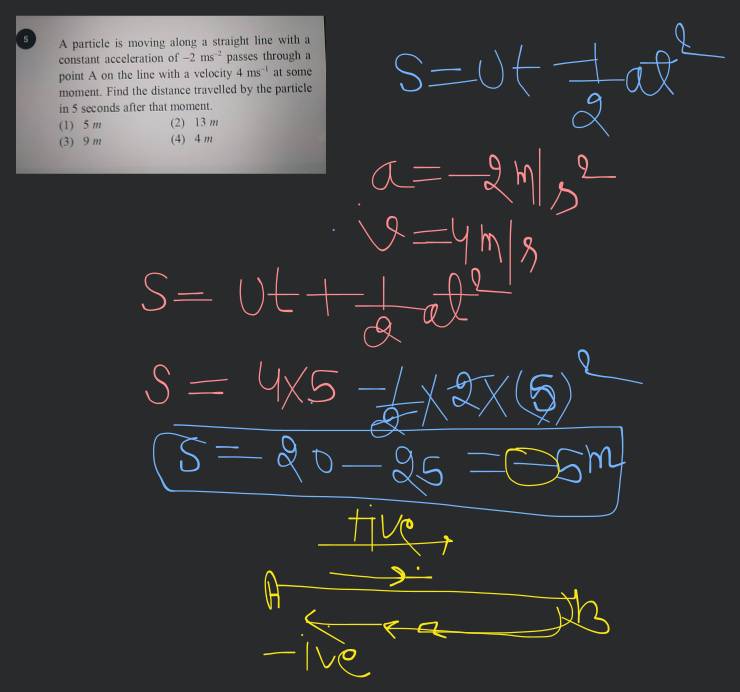 5
A particle is moving along a straight line with a
constant acceleration of –2 ms⁻² passes through a
point A on the line with a velocity 4 ms⁻¹ at some
moment. Find the distance travelled by the particle
in 5 seconds after that moment.
(1) 5 m (2) 13 m
(3) 9 m (4) 4 m
S=Ut+1/2at²
a=–2m/s²
v=4m/s
S=Ut+1/2at²
S=4×5–1/2×2×(5)²
S=20–25=–5m
+ive
A B
–ive